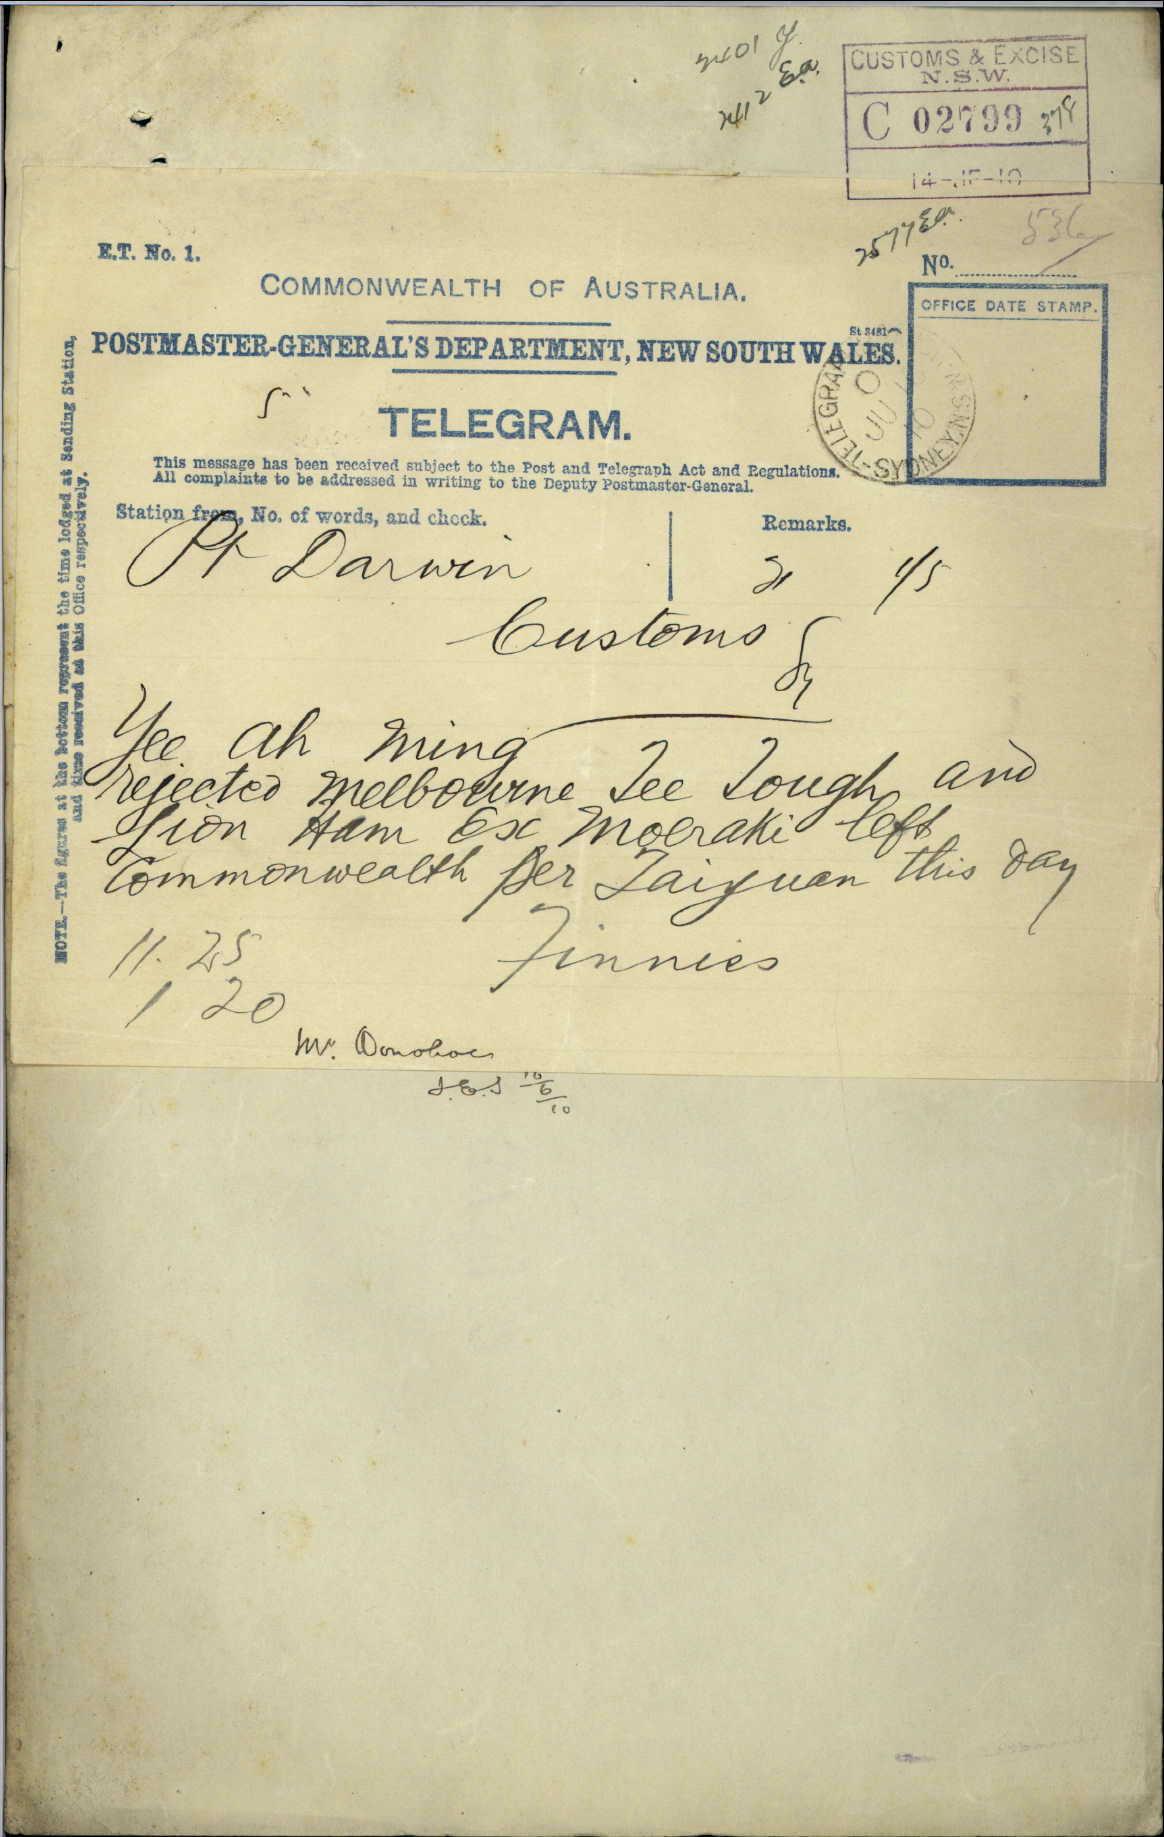 2401 Y.
2412 E.a.
CUSTOMS & EXCISE
N.S.W.
C 02799 378
14-JE-10
2577 E.a.
E.T. No. 1.
536
No.
COMMONWEALTH OF AUSTRALIA.
OFFICE DATE STAMP.
St 3481
POSTMASTER-GENERAL'S DEPARTMENT, NEW SOUTH WALES.
TELEGRAM.
TELEGRAPH
SYDNEY.N.S.W
10 JU 10
This message has been received subject to the Post and Telegraph Act and Regulations.
All complaints to be addressed in writing to the Deputy Postmaster-General.
Station from, No. of words, and check.
Remarks.
Pt Darwin 21 1/5
Customs
Sy
Yee Ah Ming
rejected Melbourne Tee Tough and
Sion Ham Ex Moeraki left
Commonwealth per Taiyuan this day
11.25 Finnies
1 20
Mr. Donohoe
10/6/10
NOTE.—The figures at the bottom represent the time lodged at Sending Station,
and time received at this Office respectively.